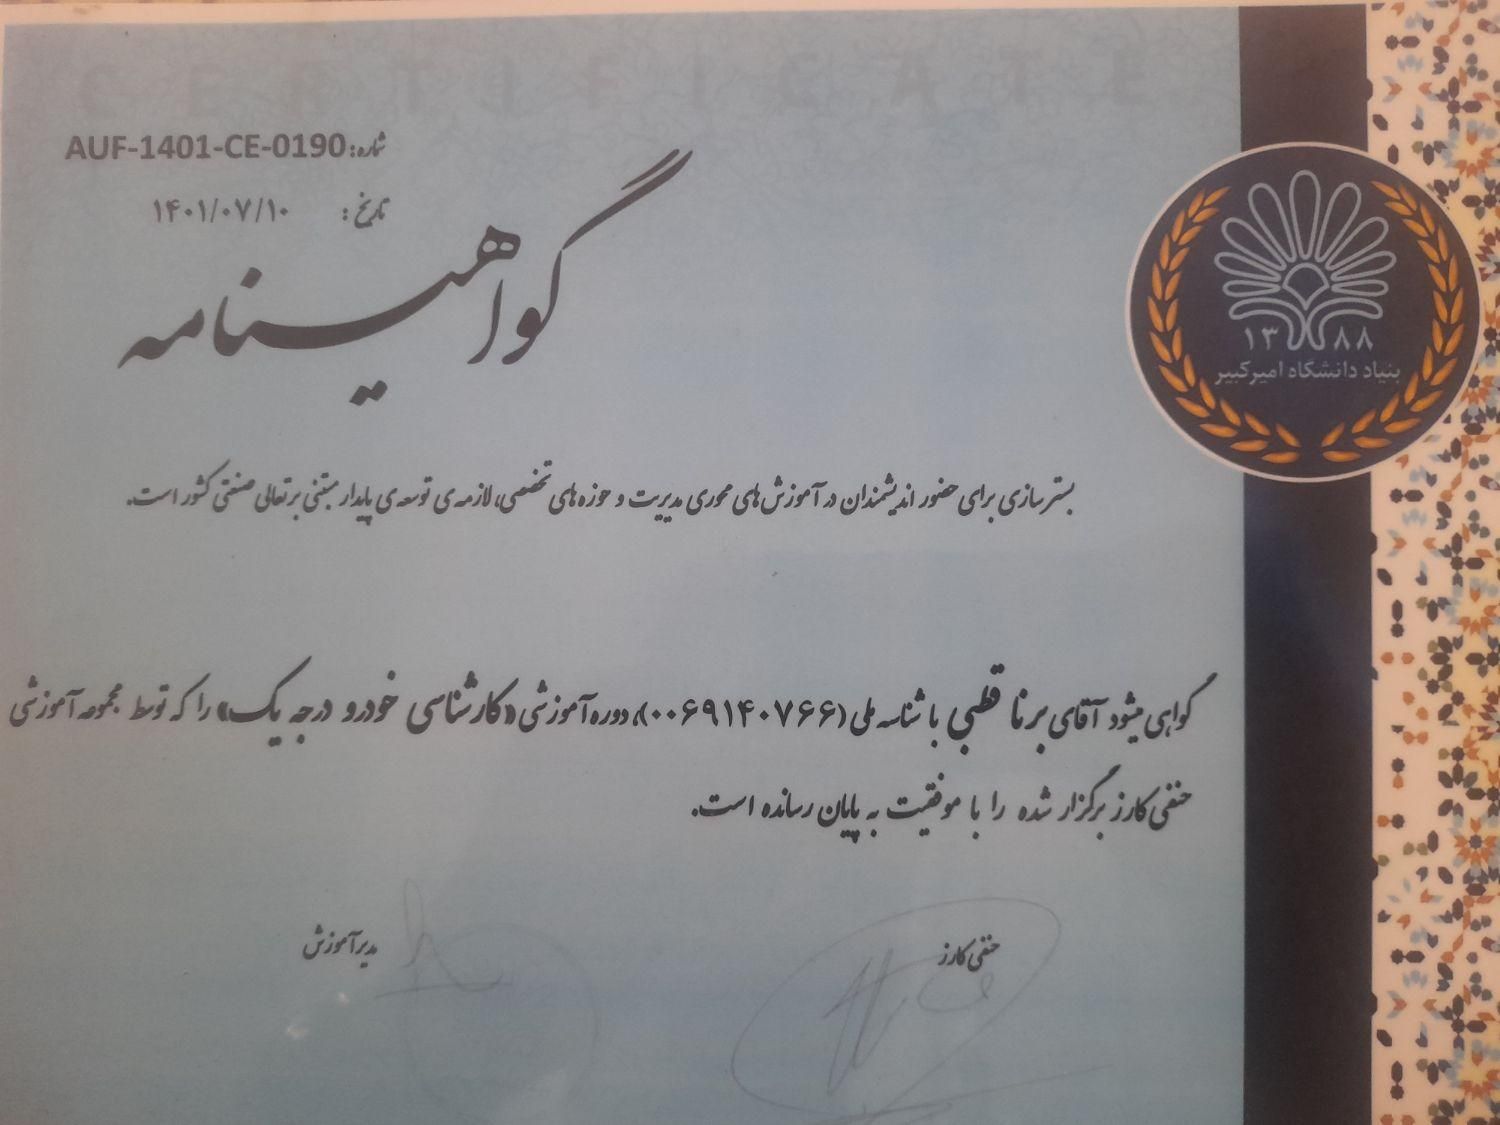 CERTIFICATE
شماره: AUF-1401-CE-0190
تاریخ: ۱۴۰۱/۰۷/۱۰
گواهینامه
۱۳۸۸
بنیاد دانشگاه امیرکبیر
بسترسازی برای حضور اندیشمندان در آموزش های محوری مدیریت و حوزه های تخصصی، لازمه ی توسعه ی پایدار مبتنی بر تعالی صنعتی کشور است.
گواهی میشود آقای برنا قطبی با شناسه ملی (۰۰۶۹۱۴۰۷۶۶)، دوره آموزشی «کارشناسی خودرو درجه یک» را که توسط مجموعه آموزشی
حنفی کارز برگزار شده را با موفقیت به پایان رسانده است.
حنفی کارز
مدیر آموزش